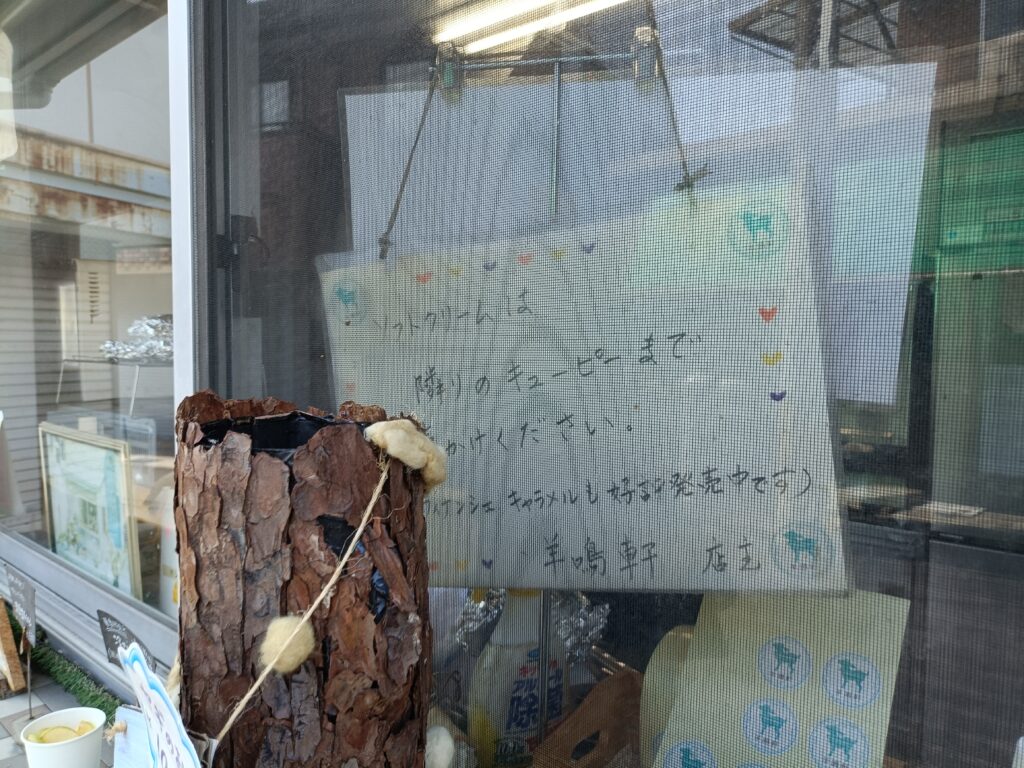 ソフトクリームは
隣りのキューピーまで
かけください。
キャラメルも好評発売中です)
羊鳴軒 店主
除